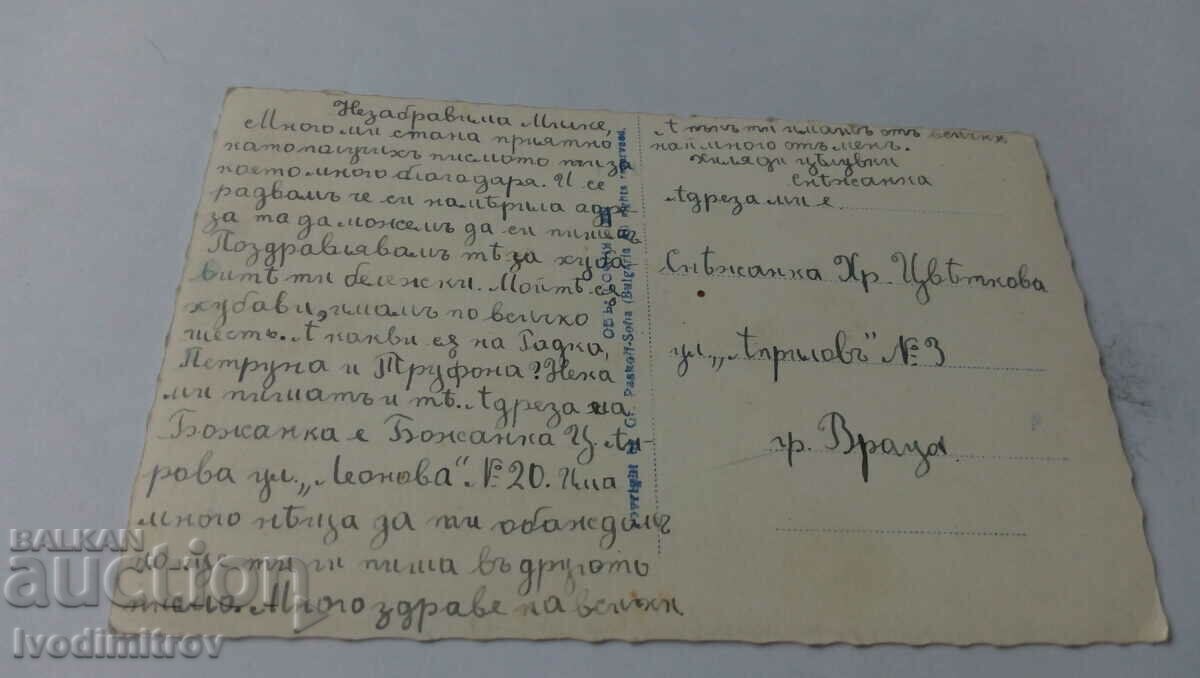 Незабравима Мимке,
Много ми стана приятно
като получихъ писмото ти за
което много благодаря. И се
радвамъ че си намѣрила адре-
за та да можемъ да си пишемъ
Поздравлявамъ тѣ за хуба-
витѣ ти бележки. Мойтѣ сѫ
хубави, имамъ по всичко
шесть. А какви сѫ на Радка,
Петруна и Труфона? Нека
ми пишатъ и тѣ. Адреза на
Божанка е Божанка Ц.
рова ул. „Леонова" № 20. Има
много нѣща да ти обаждамъ
но ще ти ги пиша въ другото
писмо. Много здраве на всички
А пъкъ ти имашъ отъ всички
най много отъ менъ.
Хиляди цѣлувки
Снѣжанка
Адреза ми е
Снѣжанка Хр. Цвѣткова
ул. „Априловъ" № 3
гр. Враца
Gr. Paskoff-Sofia (Bulgaria)
BALKAN
auction
Ivodimitrov